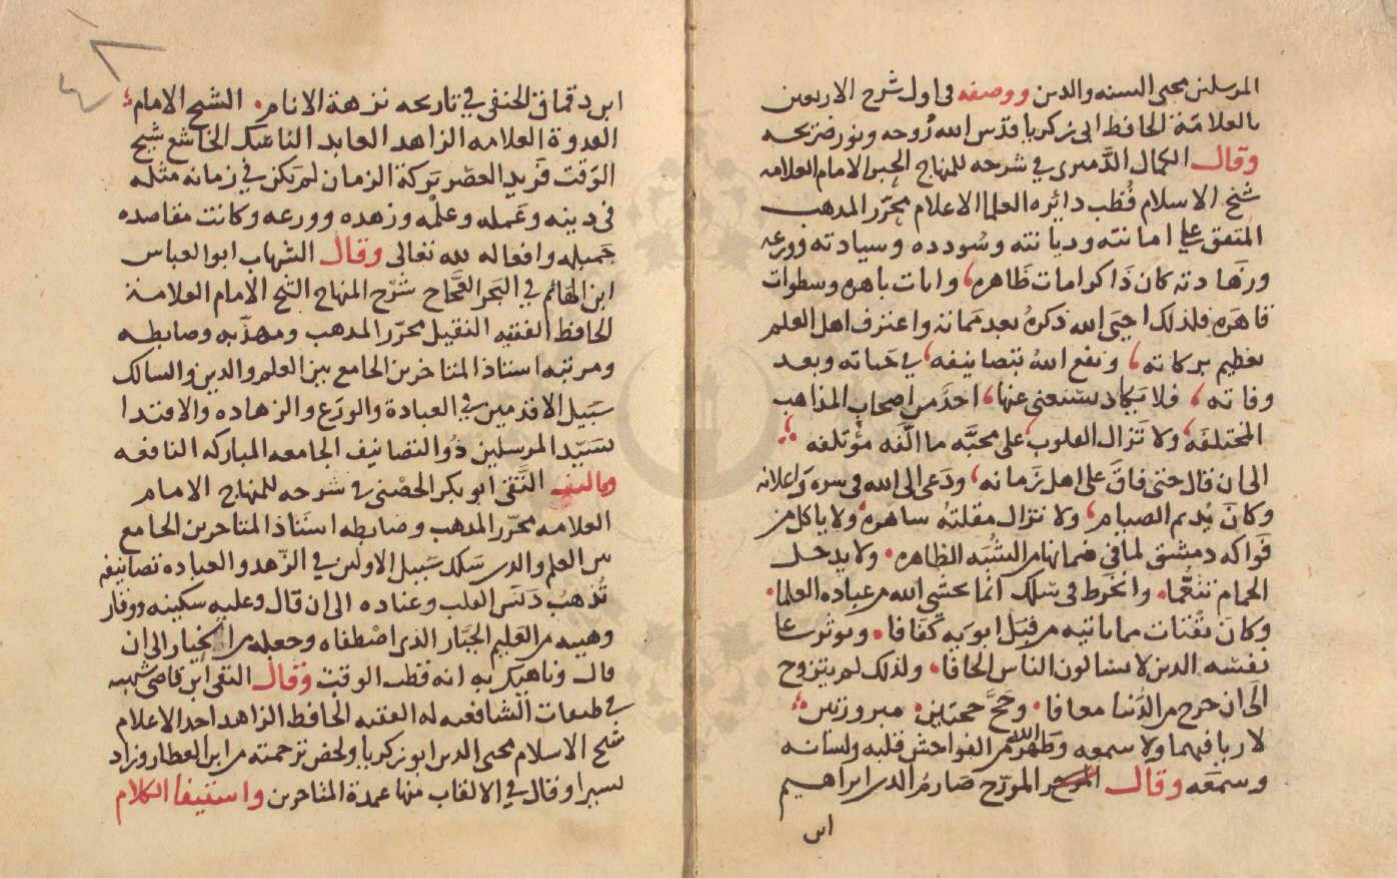 المرسلين محيى السنه والدين ووصفه فى اول شرح الاربعين
بالعلامة الحافظ ابى زكريا قدّس الله رُوحه ونور ضريحه
وقال الكمال الدَّميرى في شرحه للمنهاج الحبر الامام العلامه
شيخ الاسلام قُطب دائره العلما الاعلام محرّر المذهب
المتفق على امانته وديانته وسُودده وسيادته وورعه
وزهادته كان ذا كرامات ظاهره وايات باهره وسطوات
قاهره فلذلك احيَى الله ذكرهُ بعد مماته واعترف اهل العلم
بعظيم بركاته ونفع اللهُ بتصانيفه في حَياته وبعد
وفاته فلا يكاد يستغنى عنها احدٌ من اصحاب المذاهب
المختلفَه ولا تزال القلوب على محبَّه ما الَّفه مؤتلفه
الى ان قال حتى فاقَ على اهل زَمانه ودَعى الى الله فى سره وَاعلانه
وكانَ يُديم الصيام ولا تزال مقلتهُ ساهره ولا ياكل من
فَواكه دمشق لما فى ضمانها من الشُبَه الظاهره ولا يدخل
الحمام تنعّما وانخرط فى سَلك انما يخشى الله من عباده العلما
وكانَ يَقْتات مما ياتيه من قبَل ابويه كَفَافا ويوثر على
نفسه الذين لا يسالون الناس الحافا ولذلك لم يتزوج
الى ان خرج من الدُّنيا معافا وحَجَّ حجّتين مبرورتين
لا ريا فيهما ولا سمعه وطهَّر الله من الفواحش قلبه ولسانه
وسمعَه وقال المورّخ صَارمُ الدين ابراهيم
ابن
ابن دقماق الحنفى في تاريخه نزهة الانام الشيخ الامام
القدوة العلامه الزاهد العابد الناسك الخاشع شيخ
الوَقت فَريد العصْر بَركة الزمان لم يَكن في زمانه مثله
فى دينه وعَمله وعلْمه وزهده وورعه وكانت مقاصده
جَميله وافعاله لله تعالى وقال الشهاب ابو العباس
ابن الهَائم في البَحر العجَّاج شَرْح المنهاج الشيخ الامام العلامة
الحافظ الفقيه النقيل محرّر المذهب ومهذّبه وضابطه
ومرتبه استاذ المتاخرين الجامع بين العلم والدين والسالك
سَبيل الاقدمين في العبادة والورَع والزهاده والاقتدا
بسَيّد المرسلين ذُو التصانيف الجامعه المباركه النافعه
التَّقى ابو بكر الحصْنى فى شرحه للمنهاج الامام
العلامه محَرّر المذهب وضابطه استاذ المتاخرين الجامع
بين العلم والدين سَلك سَبيل الاولين في الزّهد والعباده تصانيفه
تُذهبُ دَنس القلب وعناده الى ان قال وعليه سكينه ووقار
وهيبه من العَليم الجبّار الذى اصْطفاه وجعله من الاخيار الى ان
قال وناهيك به انه قطب الوقت وقال التقى ابن قاضى شهبه
في طبقات الشافعيه له الفقيه الحافظ الزاهد احد الاعلام
شيخ الاسلام محيى الدين ابو زكريا ولخص ترجمته من ابن العطار وزاد
يسيرا وقال في الالقاب منها عمدة المتاخرين واستيفا الكلام